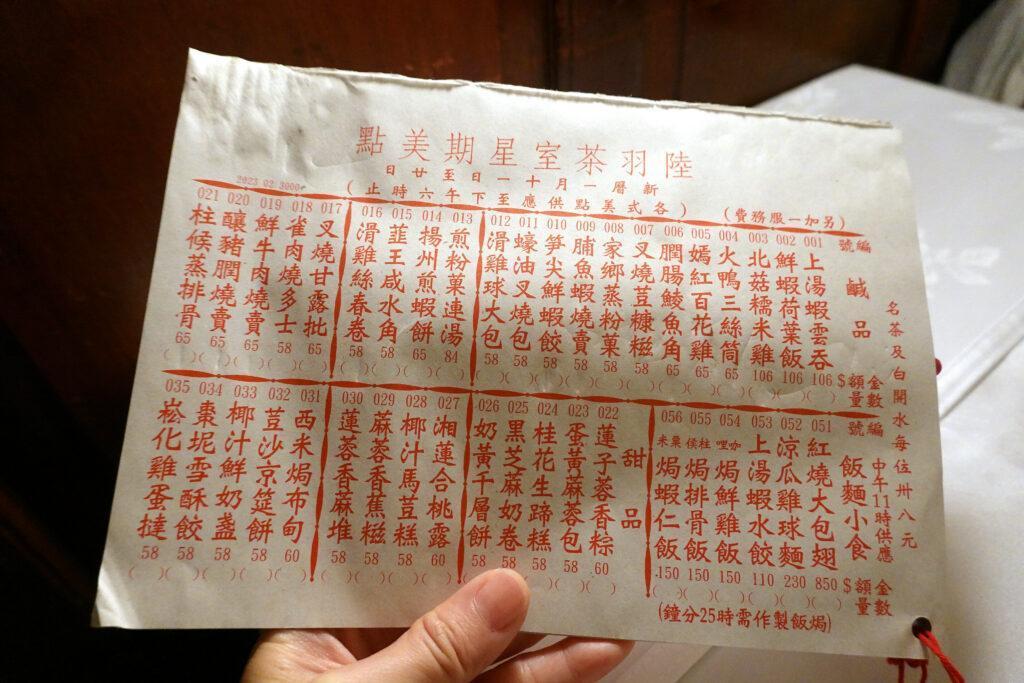 陸羽茶室星期美點
新曆一月十一日至廿日
(各式美點供應至下午六時止)
(另加一服務費)
2023 02 3000
名茶及白開水每位卅八元
中午11時供應
編號
鹹品
金額$
數量
001 上湯蝦雲吞 106
002 鮮蝦荷葉飯 106
003 北菇糯米雞 106
004 火鴨三絲筒 65
005 嫣紅百花雞 65
006 膶腸鯪魚角 65
007 叉燒荳糠糍 58
008 家鄉蒸粉菓 58
009 脯魚蝦燒賣 58
010 笋尖鮮蝦餃 58
011 蠔油叉燒包 58
012 滑雞球大包 58
013 煎粉菓連湯 84
014 揚州煎蝦餅 65
015 韮王咸水角 58
016 滑雞絲春卷 58
017 叉燒甘露批 65
018 雀肉燒多士 58
019 鮮牛肉燒賣 65
020 釀豬膶燒賣 65
021 柱候蒸排骨 65
編號
飯麵小食
金額$
數量
051 紅燒大包翅 850
052 涼瓜雞球麵 230
053 上湯蝦水餃 110
054 咖哩焗鮮雞飯 150
055 柱侯焗排骨飯 150
056 粟米焗蝦仁飯 150
(焗飯製作需時25分鐘)
甜品
022 蓮子蓉香粽 60
023 蛋黃蔴蓉包 58
024 桂花生蹄糕 58
025 黑芝蔴奶卷 58
026 奶黃千層餅 58
027 湘蓮合桃露 60
028 椰汁馬荳糕 58
029 蔴蓉香蕉糍 58
030 蓮蓉香蔴堆 58
031 西米焗布甸 60
032 荳沙京筵餅 58
033 椰汁鮮奶盞 58
034 棗坭雪酥餃 58
035 崧化雞蛋撻 58